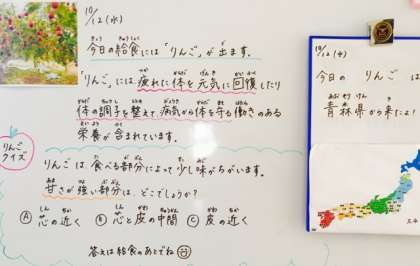 10/12(水)
今日の給食には「りんご」が出ます。
「りんご」には疲れた体を元気に回復したり
体の調子を整えて病気から体を守る働きのある
栄養が含まれています。
りんごクイズ
りんごは食べる部分によって少し味がちがいます。
甘さが強い部分は、どこでしょうか?
Ⓐ 芯の近く Ⓑ 芯と皮の中間 Ⓒ 皮の近く
答えは給食のあとでね
10/12(水)
今日の りんご は
青森県から来たよ!